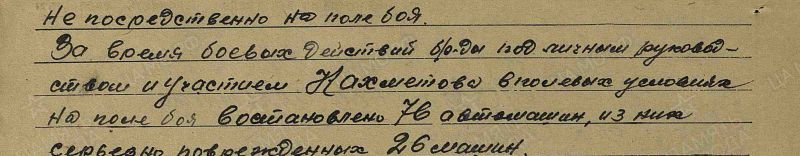 Не посредственно на поле боя.
За время боевых действий бр-ды под личным руковод-
ством и участием Кахметова в полевых условиях
на поле боя востановлено 76 автомашин, из них
серьезно поврежденных 26 машин.